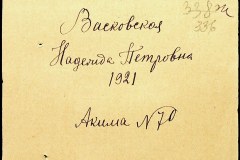 338
336
Васковская
Надежда Петровна
1921
Акима N 70